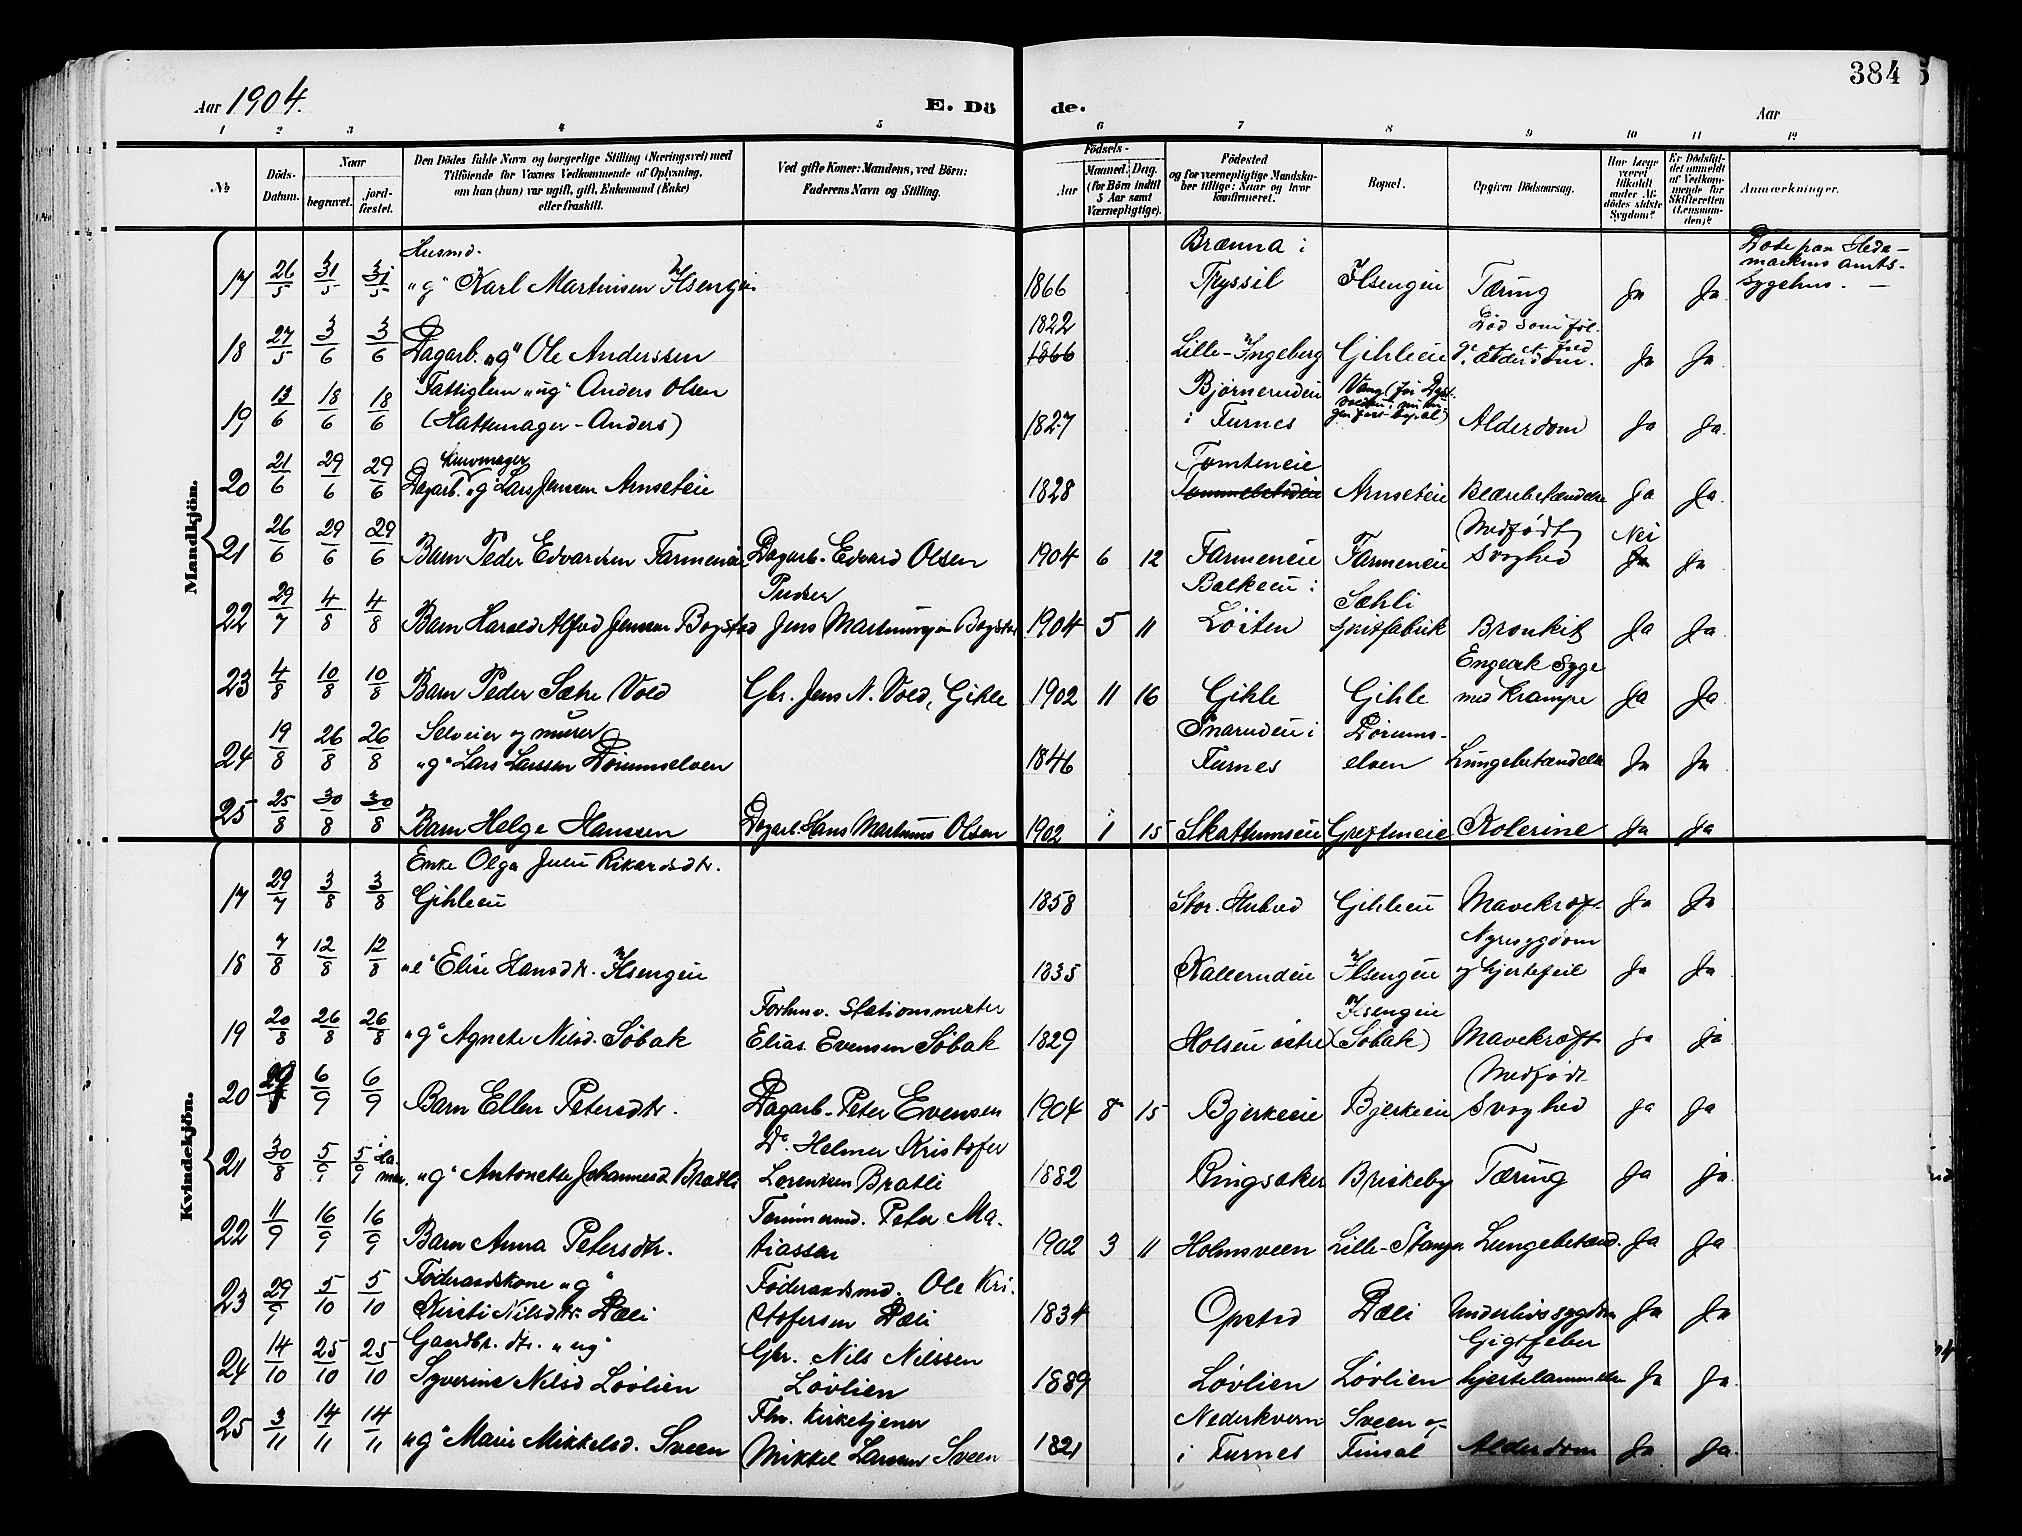 384
Aar 1904.
E. Dö
de.
Aar
1 2 3 4 5 6 7 8 9 10 11 12
No
Döds-Datum.
Naar
begravet.
jord-fæstet.
Den Dödes fulde Navn og borgerlige Stilling (Næringsvei) med
Tilföiende for Voxnes Vedkommende af Oplysning,
om han (hun) var ugift, gift, Enkemand (Enke)
eller fraskilt.
Ved gifte Koner: Mandens, ved Börn:
Faderens Navn og Stilling.
Födsels-
Aar
Maaned. Dag.
(for Börn indtil
5 Aar samt
Værnepligtige).
Födested
og for værnepligtige Mandska-
ber tillige: Naar og hvor
konfirmeret.
Bopæl.
Opgiven Dödsaarsag.
Har Læge
været
tilkaldt
under Af-
dödes sidste
Sygdom?
Er Dödsfal-
det anmeldt
af Vedkom-
mende for
Skifteretten
(Lensman-
den)?
Anmærkninger.
Mandkjön.
Husmd. Brænna i Døde paa Hede-
17 26/5 31/5 31/5 "g" Karl Martinsen Ilsengen 1866 Trysil Ilsengen Tæring Ja Ja markens Amts-
sygehus.
1822 Død som føl-
18 27/5 3/6 3/6 Dagarb. "g" Ole Anderssen 1866 Lille-Ingeberg Gihleie Alderdom. Ja Ja
Fattiglem "ug" Anders Olsen Bjørnerudeie
19 13/6 18/6 18/6 (Hattemager-Anders) 1827 i Furnes Vang Alderdom Ja Ja
Kurvmager Tomteneie
20 21/6 29/6 29/6 Dagarb. "g" Lars Jensen Arnseteie 1828 Arnseteie Blærebetændelse Ja Ja
Medfødt Nei
21 26/6 29/6 29/6 Barn Peder Edvardsen Farmeneie Dagarb. Edvard Olsen 1904 6 12 Farmeneie Farmeneie Svaghed Ja Ja
Pudser Balkeeie i Sæhli
22 29/7 4/8 4/8 Barn Harald Alfred Jensen Bogstad Jens Martinusen Bogstad 1904 5 11 Løiten Spritfabrik Bronkit Ja Ja
Engelsk Syge
23 4/8 10/8 10/8 Barn Peder Sætre Vold Gbr. Jens N. Vold, Gihle 1902 11 16 Gihle Gihle med Krampe Ja Ja
Selveier og murer Snarudeie i Dørums-
24 19/8 26/8 26/8 "g" Lars Larssen Dørumselven 1846 Furnes elven Lungebetændelse Ja Ja
25 25/8 30/8 30/8 Barn Helge Hanssen Dagarb. Hans Martinus Olsen 1902 1 15 Skattumseie Grefteneie Kolerine Ja Ja
Kvindekjön.
Enke Olga Julie Rikardsdtr.
17 29/7 3/8 3/8 Gihleeie 1858 Stor-Hubred Gihleeie Mavekræft Ja Ja
Nyresygdom
18 7/8 12/8 12/8 "e" Elise Hansdtr. Ilsengeie 1835 Kallerudeie Ilsengeie og hjertefeil Ja Ja
Forhenv. Stationsmester Ilsengeie
19 20/8 26/8 26/8 "g" Agnete Nilsd. Søbak Elias Evensen Søbak 1829 Holsen østre (Søbak) Mavekræft Ja Ja
Medfødt
20 6/9 6/9 Barn Ellen Petersdtr. Dagarb. Peter Evensen 1904 8 15 Bjerkeeie Bjerkeeie Svaghed Ja Ja
Do. Helmer Kristofer
21 30/8 5/9 5/9 i Ha-mar. "g" Antonette Johannesd. Bratli Lorentsen Bratli 1882 Ringsaker Briskeby Tæring Ja Ja
Tømmermd. Peter Ma-
22 11/9 16/9 16/9 Barn Anna Petersdtr. tiassen 1902 3 11 Holmsveen Lille-Stangen Lungebetænd. Ja Ja
Føderaadskone "g" Føderaadsmd. Ole Kri-
23 29/9 5/10 5/10 Kirsti Nilsdtr. Dæli stofersen Dæli 1834 Opstad Dæli Underlivssygdom Ja Ja
Gaardbr. dtr. "ug" Gbr. Nils Nilssen Gigtfeber
24 14/10 25/10 25/10 Syverine Nilsd. Løvlien Løvlien 1889 Løvlien Løvlien og hjertelammelse Ja Ja
Fhv. Kirketjener Nederkvern Sveen o-
25 3/11 14/11 14/11 "g" Marie Mikkelsd. Sveen Mikkel Larsen Sveen 1821 i Furnes Finsal Alderdom Ja Ja.